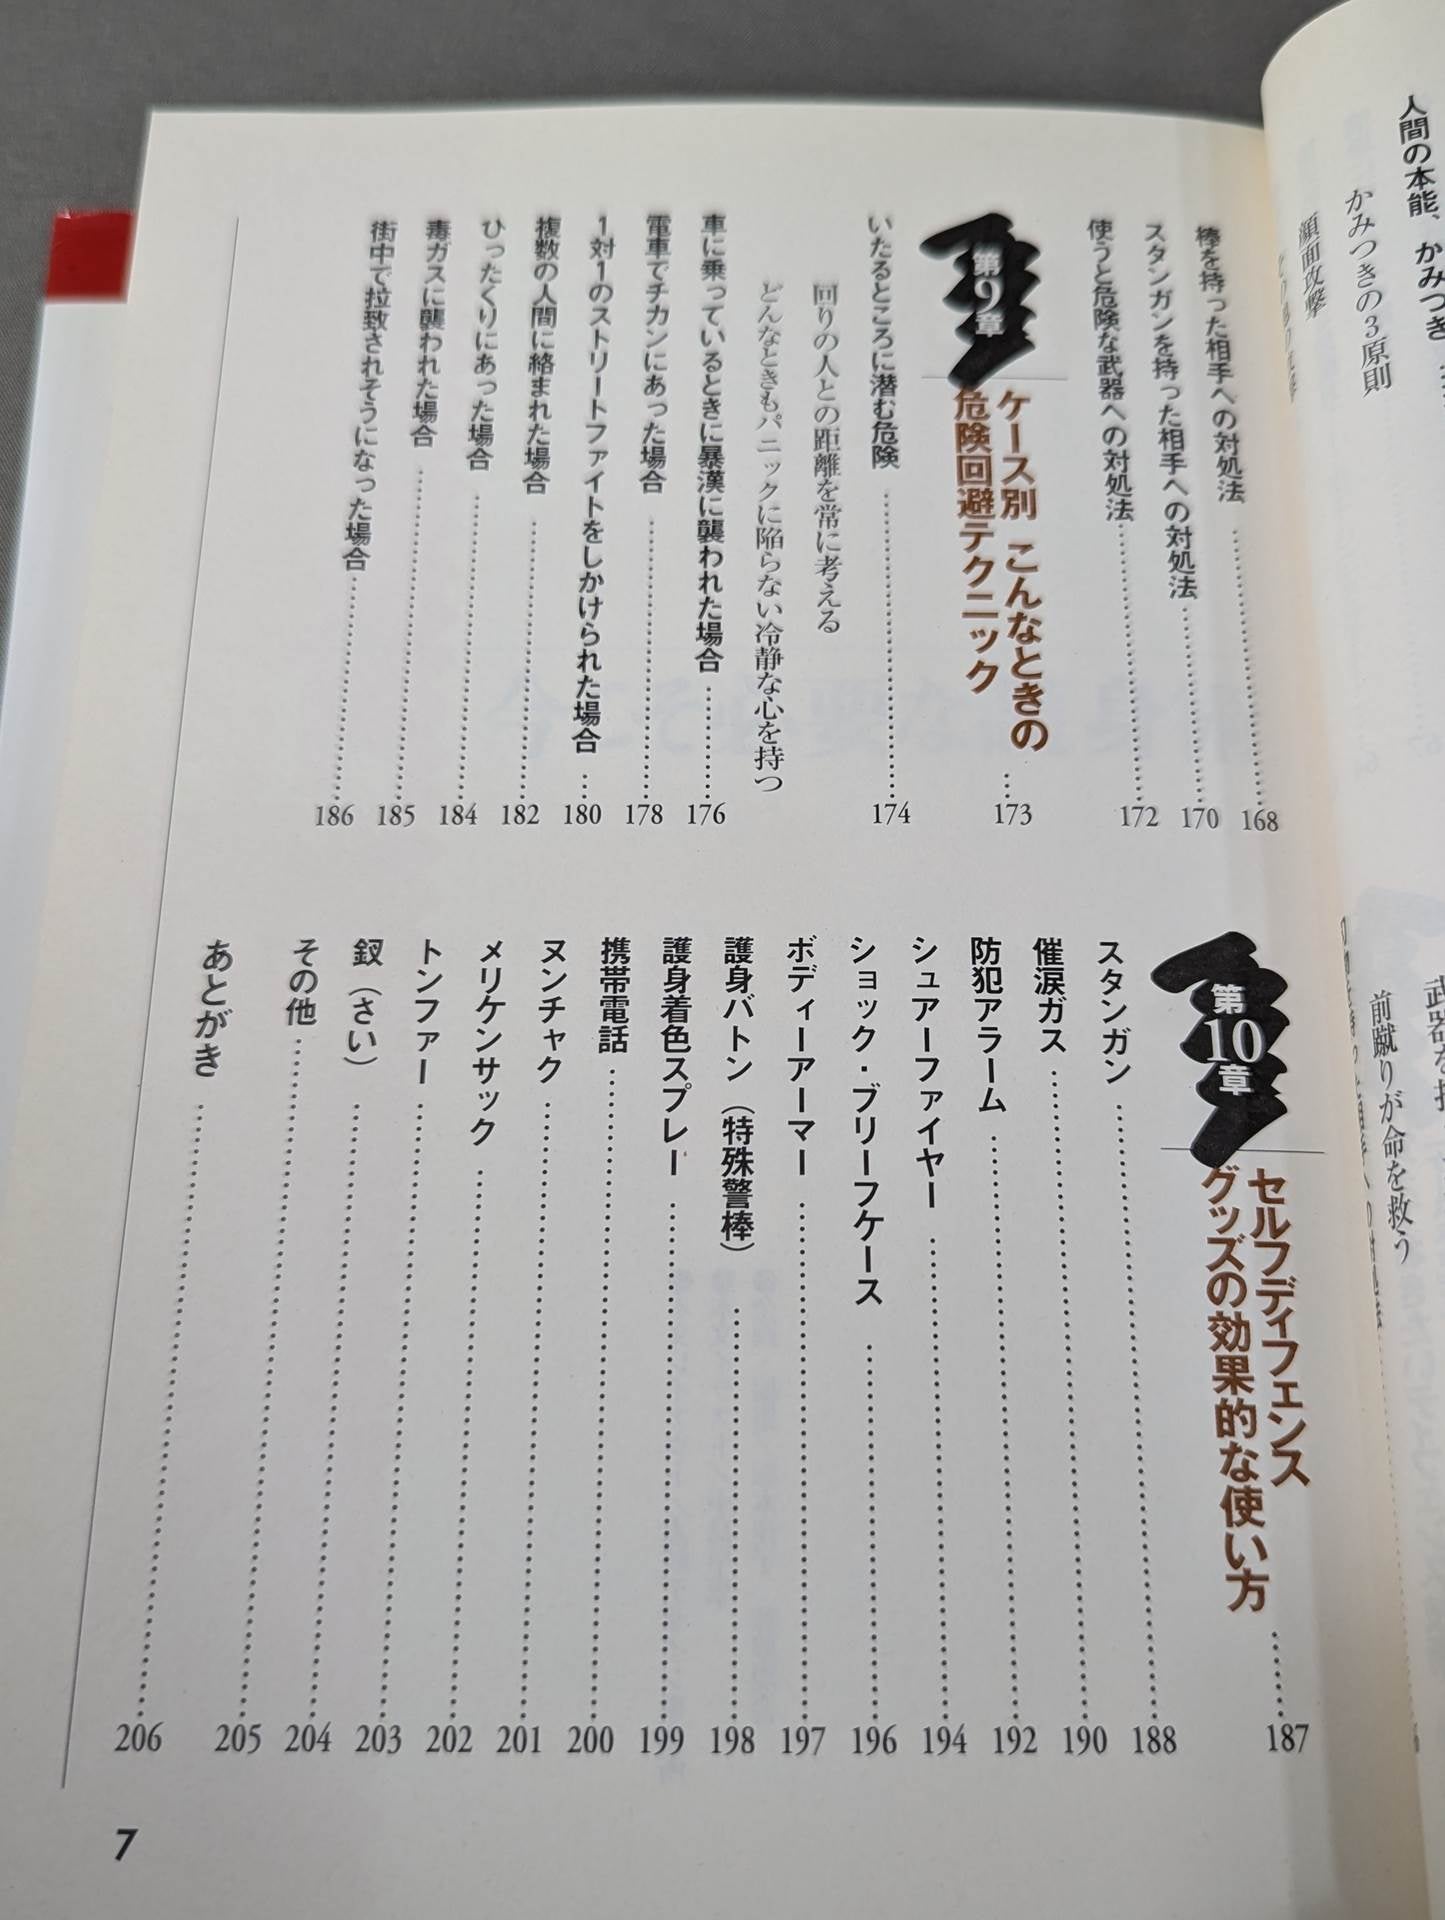 人間の本能、かみつき
かみつきの3原則
顔面攻撃
前蹴りが命を救う
棒を持った相手への対処法 168
スタンガンを持った相手への対処法 170
使うと危険な武器への対処法 172
第9章
ケース別 こんなときの
危険回避テクニック 173
いたるところに潜む危険 174
回りの人との距離を常に考える
どんなときもパニックに陥らない冷静な心を持つ
車に乗っているときに暴漢に襲われた場合 176
電車でチカンにあった場合 178
1対1のストリートファイトをしかけられた場合 180
複数の人間に絡まれた場合 182
ひったくりにあった場合 184
毒ガスに襲われた場合 185
街中で拉致されそうになった場合 186
第10章
セルフディフェンス
グッズの効果的な使い方 187
スタンガン 188
催涙ガス 190
防犯アラーム 192
シュアーファイヤー 194
ショック・ブリーフケース 196
ボディーアーマー 197
護身バトン（特殊警棒） 198
護身着色スプレー 199
携帯電話 200
ヌンチャク 201
メリケンサック 202
トンファー 203
釵（さい） 204
その他 205
あとがき 206
7